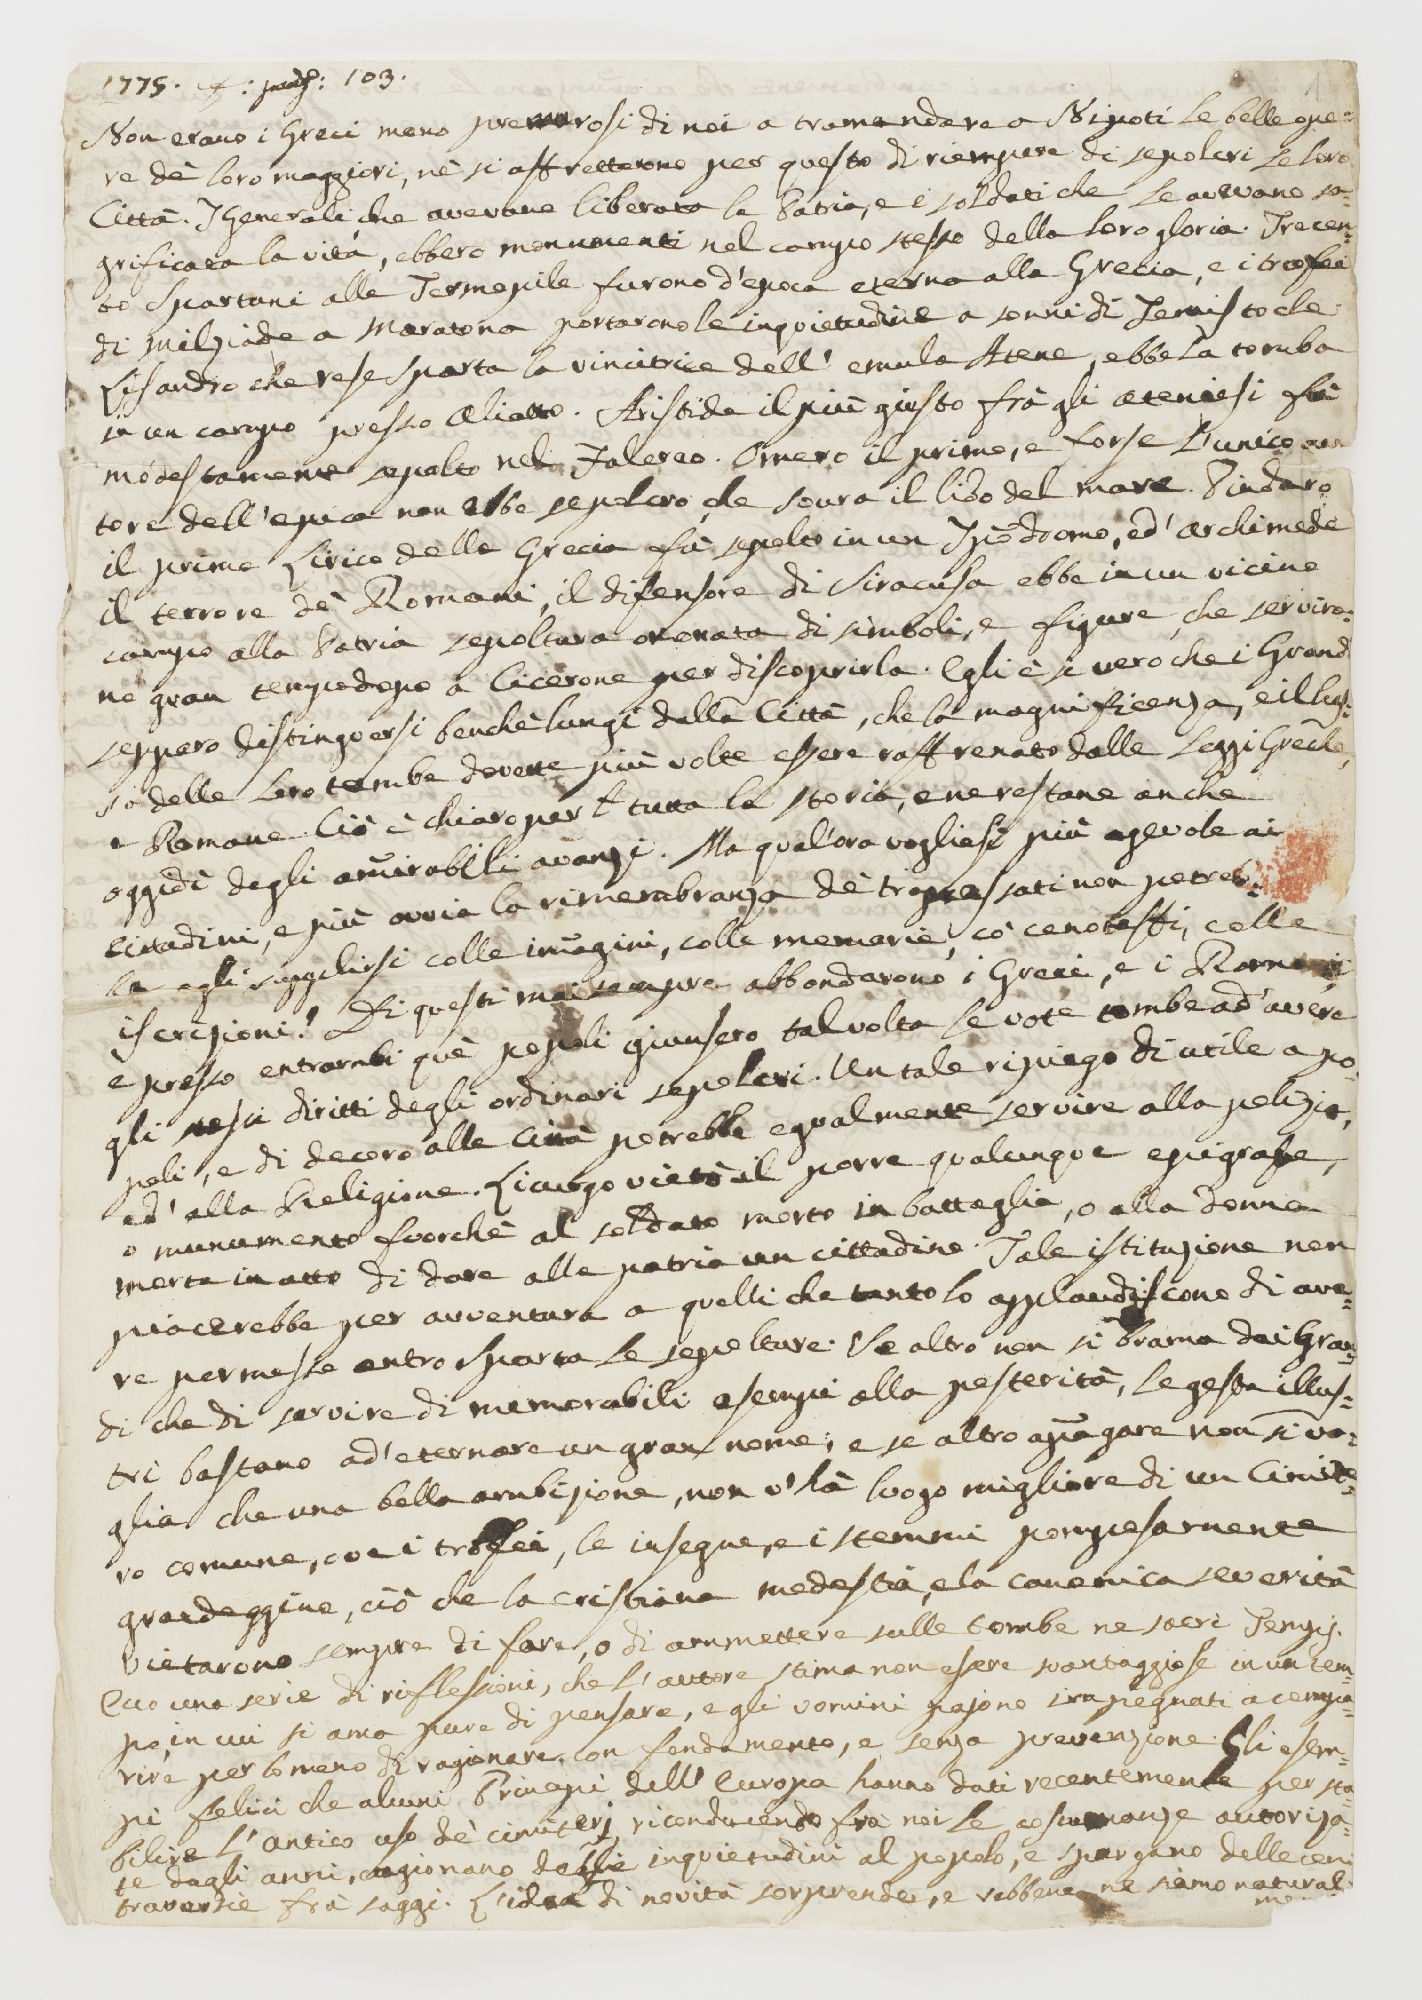 1775. : pag: 103.
Non erano i Greci meno premurosi di noi a tramandare a Nipoti le belle ope=
re dè loro maggiori, nè si affrettarono per questo di riempire di sepolcri le loro
Città. I Generali che avevano liberata la Patria, e i soldati che le avevano sa=
grificata la vita, ebbero monumenti nel campo stesso della loro gloria. Trecen=
to Spartani alle Termopile furono d'epoca eterna alla Grecia, e i trofei
di Milziade a Maratona portarono le inquietudini a sonni di Temistocle.
Lisandro che rese Sparta la vincitrice dell' emula Atene, ebbe la tomba
in un campo presso Aliatto. Aristide il più giusto frà gli ateniesi fù
modestamente sepolto nel Falereo. Omero il primo, e forse l'unico au
tore dell'epica non ebbe sepolcro che sovra il lido del mare. Pindaro
il primo Lirico della Grecia fù sepolto in un Ippodromo, ed' Archimede
il terrore dè Romani, il difensore di Siracusa ebbe in un vicino
campo alla Patria sepoltura ornata di simboli, e figure, che serviro=
no gran tempo dopo a Cicerone per discoprirla. Egli è si vero che i Grandi
seppero distinguersi benchè lungi dalla Città, che la magnificenza, e il lus=
so delle loro tombe dovette più volte essere raffrenato dalle Leggi Greche,
e Romane. Ciò è chiaro per tutta la storia, e ne restano anche
oggidì degli amirabili avanzi. Ma qual'ora vogliasi più agevole ai
Cittadini, e più ovvia la rimembranza dè trapassati non potreb=
be egli supplirsi colle imagini, colle memorie, cò cenotaffi, colle
iscrizioni? Di questi mai sempre abbondarono i Greci, e i Romani
e presso entrambi què popoli giunsero talvolta le vote tombe ad' avere
gli stessi diritti degli ordinari sepolcri. Un tale ripiego di utile a po=
poli, e di decoro alle Città potrebbe egualmente servire alla polizia,
ed' alla Religione. Licurgo vietò il porre qualunque epigrafe,
o munumento fuorchè al soldato morto in battaglia, o alla donna
morta in atto di dare alla patria un cittadino. Tale istituzione non
piacerebbe per avventura a quelli che tanto lo applaudiscono di ave=
re permesse entro Sparta le sepolture. Se altro non si brama dai Gran=
di che di servire di memorabili esempi alla posterità, le gesta illus=
tri bastano ad' eternare un gran nome; e se altro apagare non si vo=
glia che una bella ambizione, non v'hà luogo migliore di un Cimite=
ro comune, ove i trofei, le insegne, e i stemmi pomposamente
grandeggino, ciò che la cristiana modestia, e la canonica severità
vietarono sempre di fare, o di ammettere sulle tombe ne sacri Tempj.
Ecco una serie di riflessioni, che l'autore stima non essere svantaggiose in un tem=
po, in cui si ama pure di pensare, e gli uomini pajono impegnati a compa=
rire per lo meno di ragionare con fondamento, e senza prevenzione. Gli esem=
pi felici che alcuni Principi dell' Europa hanno dati recentemente per sta=
bilire l'antico uso dè cimiterj, riconducendo frà noi le costumanze autoriza=
te dagli anni, cagionano delle inquietudini al popolo, e spargono delle con
traversie frà saggi. L'idea di novità sorprende, e sebbene ne siamo natural
me